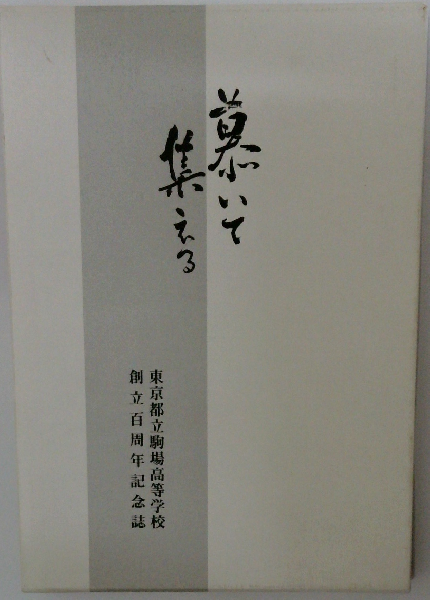 慕いて
集える
東京都立駒場高等学校
創立百周年記念誌